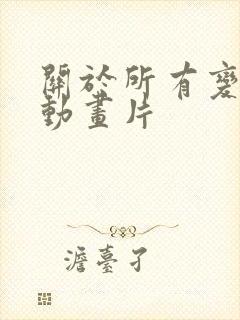 關於所有變
動畫片
澹臺孑